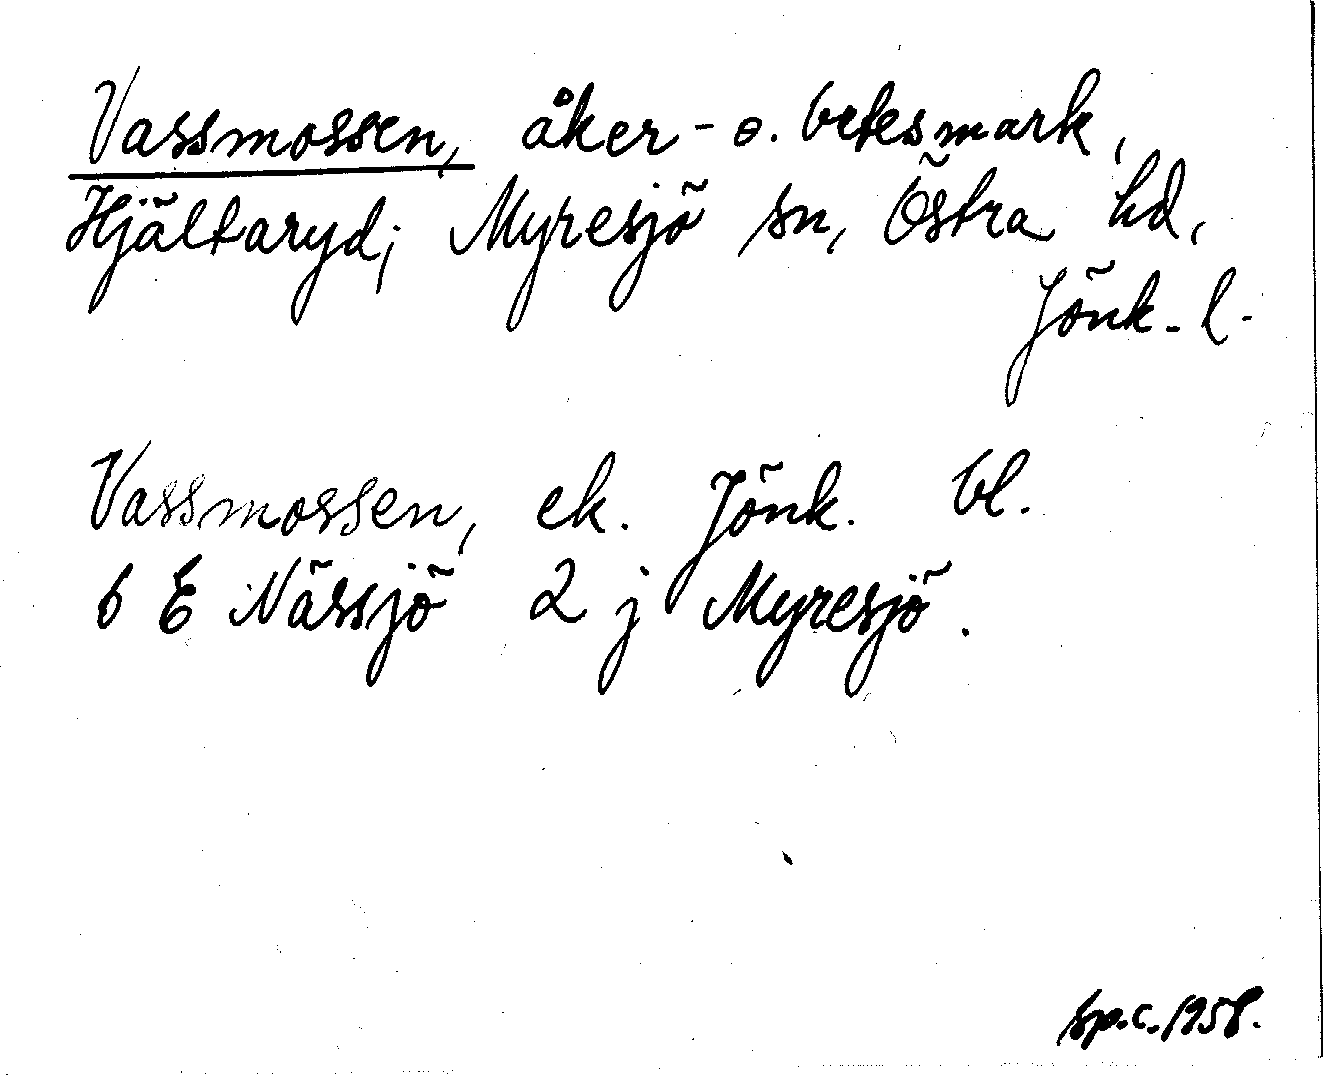 Vassmossen, åker- o. betesmark,
Hjältaryd; Myresjö sn, Östra hd,
Jönk. l.
Vassmossen, ek. Jönk. bl.
6 E Nässjö 2 j Myresjö.
sp.c. 1958.